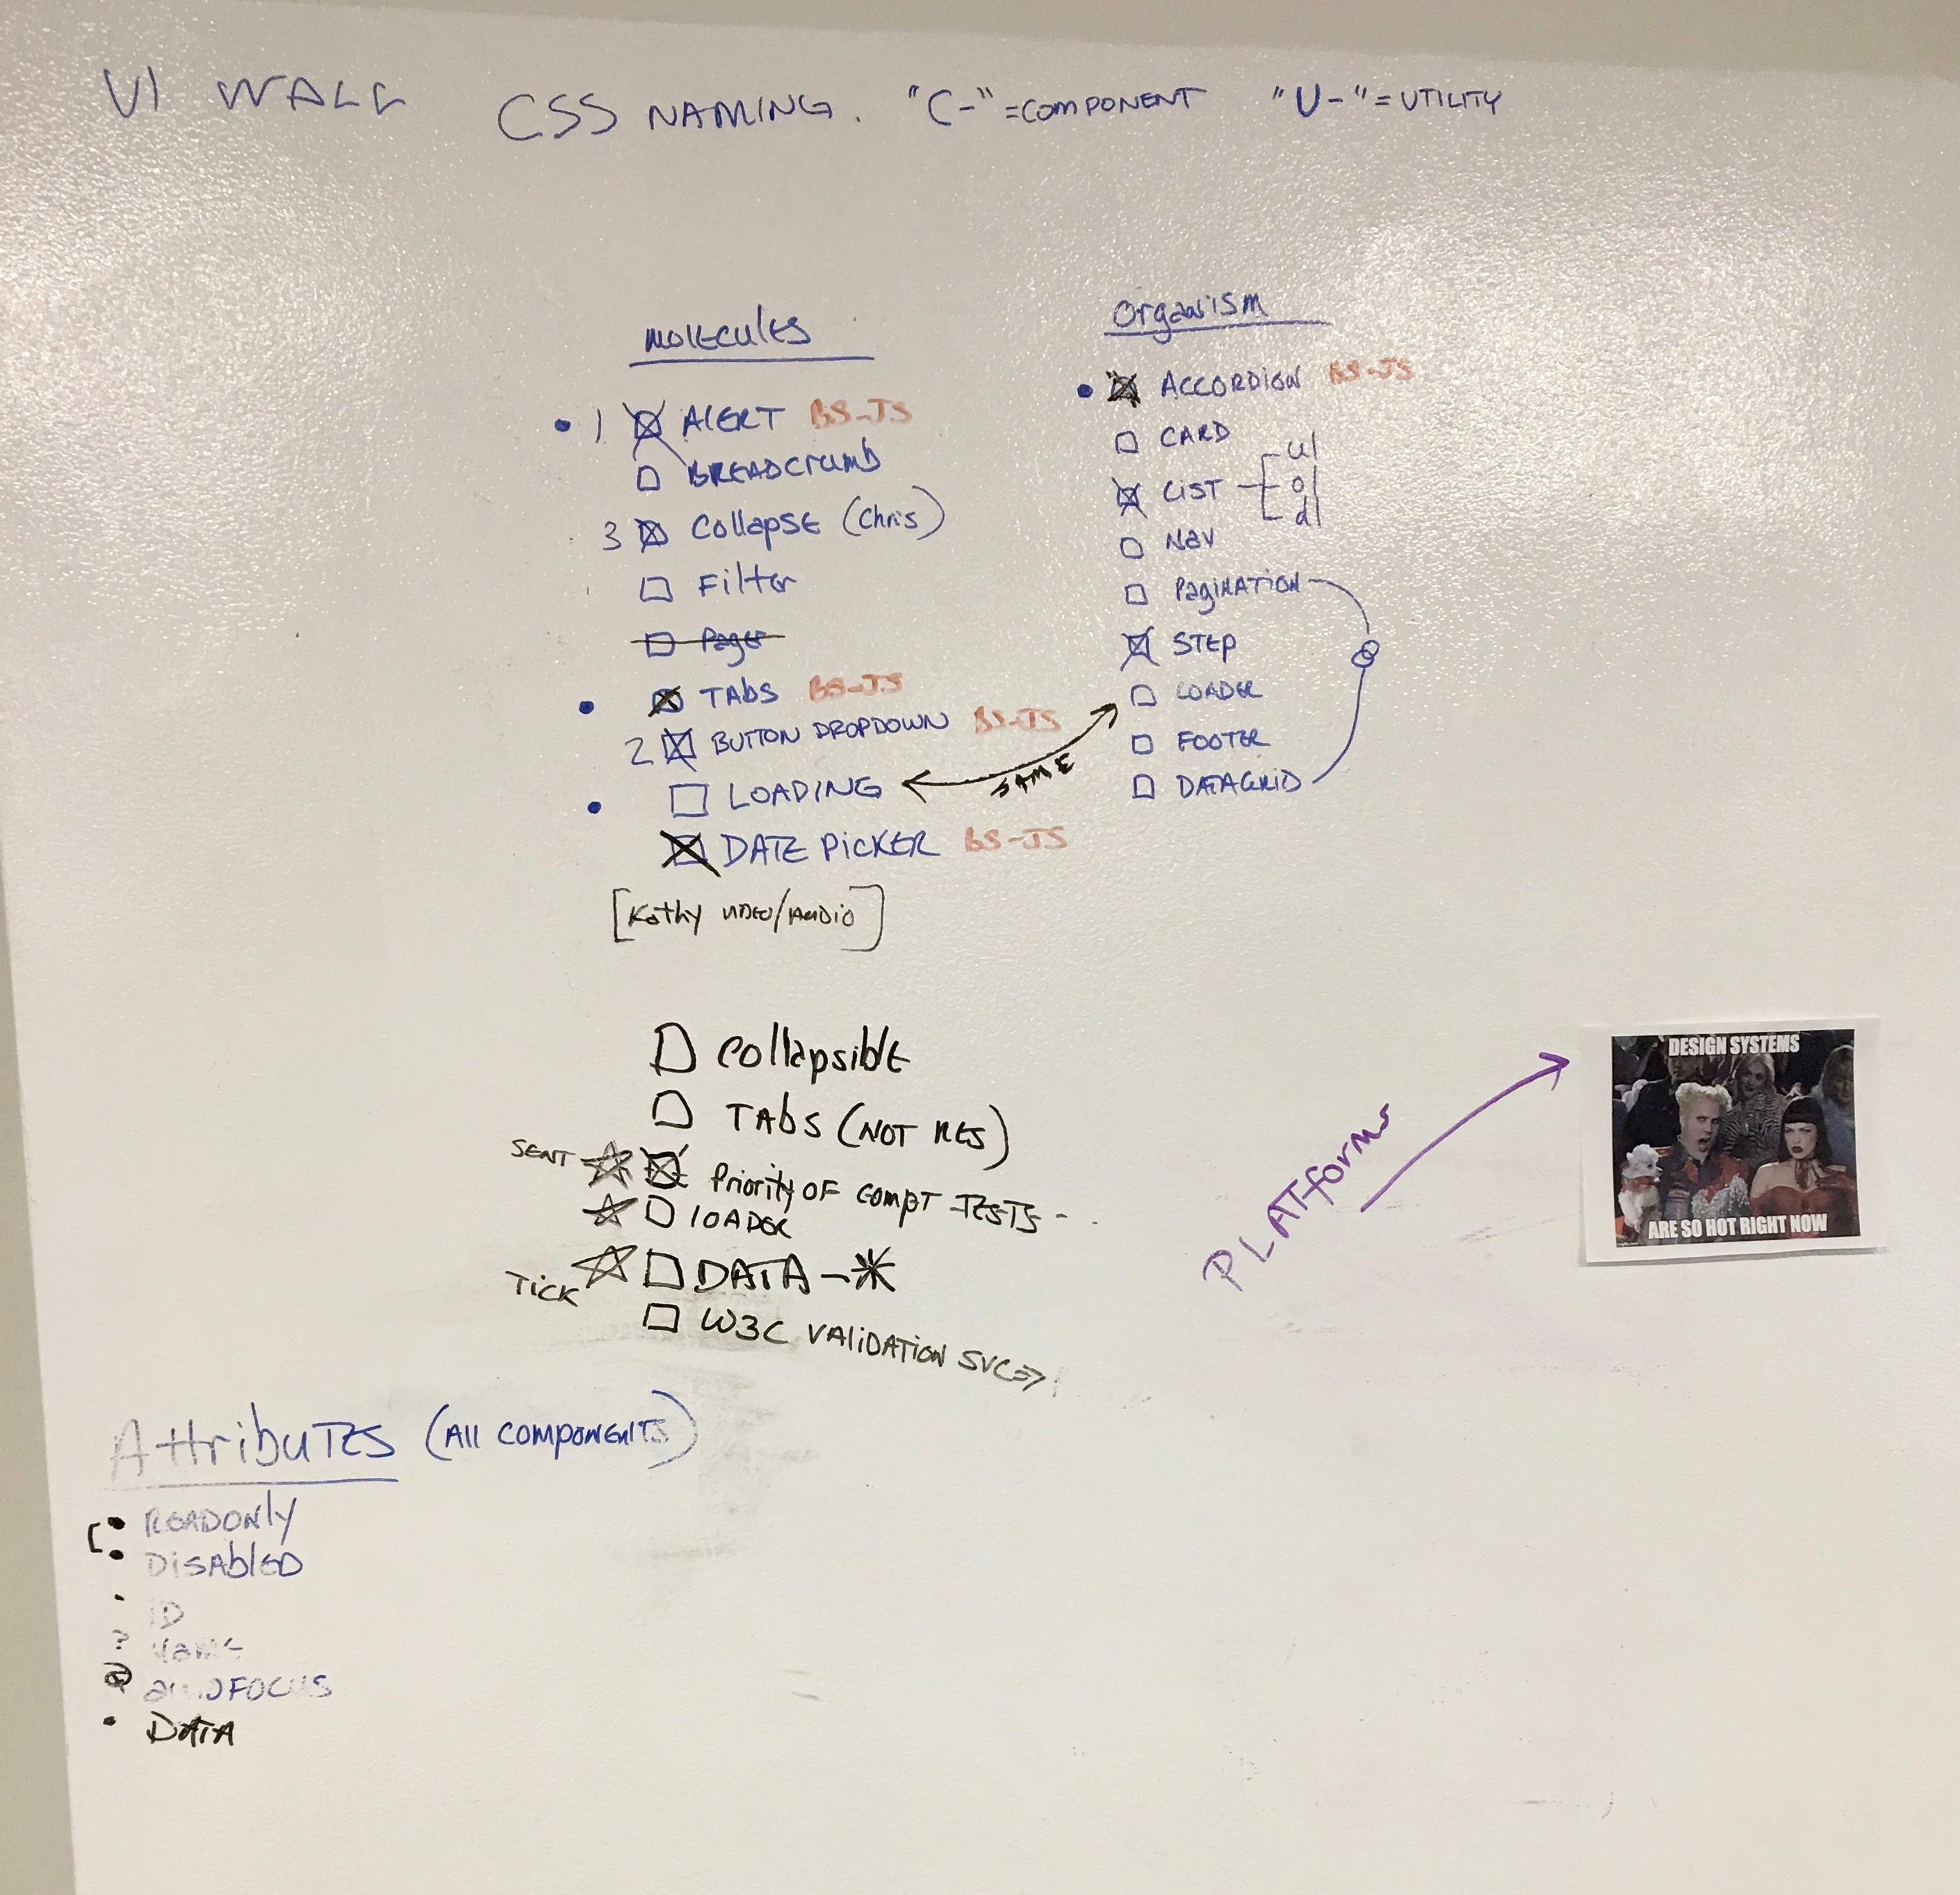 UI WALL
CSS NAMING. "C-"=COMPONENT "U-"=UTILITY
MOLECULES
1 ALERT BS-JS
BREADCRUMB
3 Collapse (Chris)
Filter
Pager
TABS BS-JS
2 BUTTON DROPDOWN BS-JS
LOADING
SAME
DATE PICKER BS-JS
[Kathy VIDEO/AUDIO]
Organism
ACCORDION BS-JS
CARD
LIST
ul
ol
dl
Nav
PagiNATION
STEP
LOADER
FOOTER
DATAGRID
Collapsible
TABS (NOT RES)
SENT Priority OF COMPT TESTS - -
LOADER
TICK DATA-*
W3C VALIDATION SVC =>
PLATforms
DESIGN SYSTEMS
ARE SO HOT RIGHT NOW
AttribuTES (All COMPONENTS)
READONly
DISAblED
ID
? Name
autoFOCUS
DATA